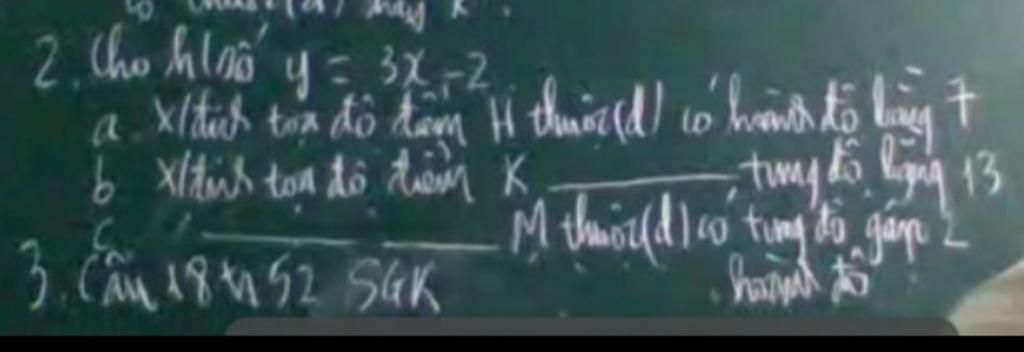 thuộc (d) hay k.
2. Cho h/số y = 3x - 2
a. X/định tọa độ điểm H thuộc (d) có hoành độ bằng 7
b X/định tọa độ điểm K ——— tung độ bằng 13
c. ——— ——— M thuộc (d) có tung độ gấp 2
hoành độ
3. Câu 18 tr 52 SGK